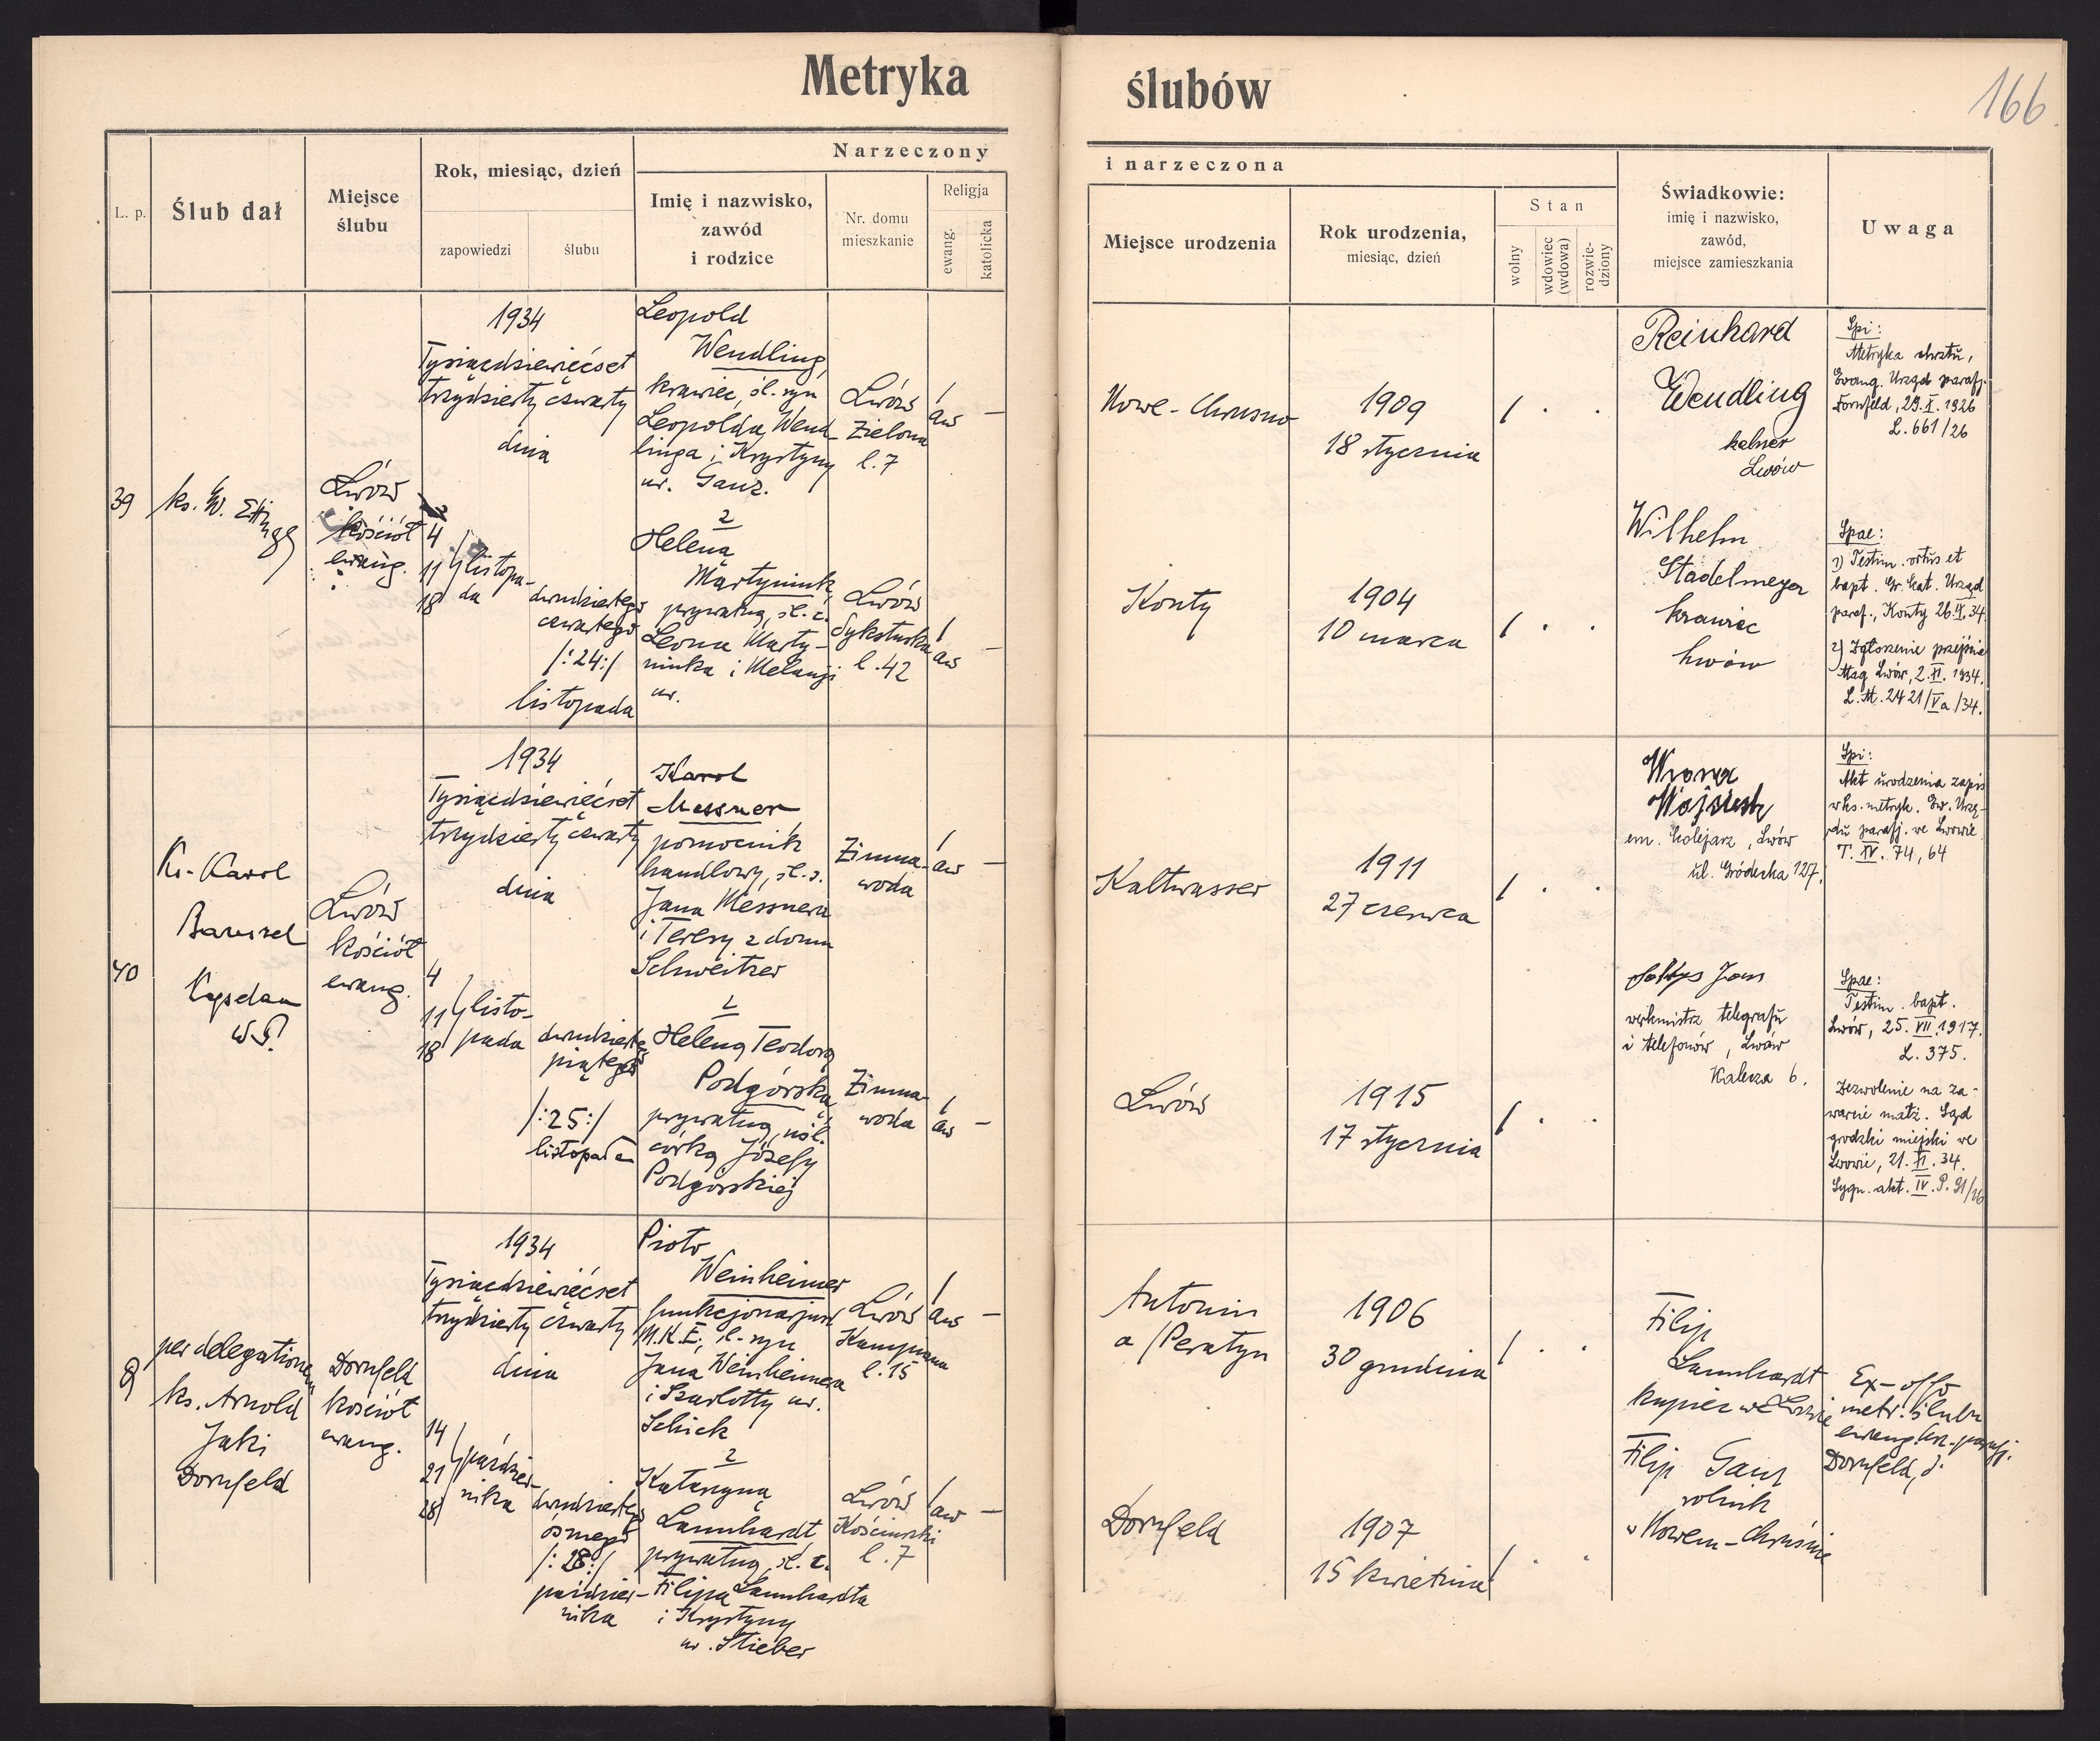 Metryka ślubów
166
L. p.
Ślub dał
Miejsce
ślubu
Rok, miesiąc, dzień
zapowiedzi
ślubu
Narzeczony
Imię i nazwisko,
zawód
i rodzice
Nr. domu
mieszkanie
Religja
ewang.
katolicka
i narzeczona
Miejsce urodzenia
Rok urodzenia,
miesiąc, dzień
Stan
wolny
wdowiec
(wdowa)
rozwie-
dziony
Świadkowie:
imię i nazwisko,
zawód,
miejsce zamieszkania
Uwaga
39
ks. W. Ettinger
Lwów
kościół
ewang.
1934
Tysiącdziewięćset
trzydziesty czwarty
dnia
4
11
18
listopa-
da
dwudziestego
czwartego
/:24:/
listopada
Leopold
Wendling,
krawiec, śl. syn
Leopolda Wend-
linga i Krystyny
ur. Ganz.
Lwów
Zielona
l. 7
1
aw
—
2
Helena
Martyniuk,
prywatna, śl. c.
Leona Marty-
niuka i Melanji
ur.
Lwów
Sykstuska
l. 42
1
aw
—
Nowe-Chrusno
1909
18 stycznia
1 . .
Reinhard
Wendling
kelner
Lwów
Spi:
Metryka chrztu,
Ewang. Urząd parafj.
Dornfeld, 29.X.1926
L. 661/26
Konty
1904
10 marca
1 . .
Wilhelm
Stadelmeyer
krawiec
Lwów
Spae:
1) Testim. ortus et
bapt. Gr. kat. Urząd
paraf., Konty 26.IX.34.
2) Zgłoszenie przejścia
Mag Lwów, 2.XI.1934.
L. M. 2421/Va/34.
40
Ks. Karol
Banszel
Lwów
kościół
ewang.
1934
Tysiącdziewięćset
trzydziesty czwarty
dnia
4
11
18
listo-
pada
dwudziestego
piątego
/:25:/
listopada
Karol
Messner
pomocnik
handlowy, śl. s.
Jana Messnera
i Teresy z domu
Schweitzer
Zimna-
woda
1
aw
—
2
Helena Teodora
Podgórska
prywatna, nśl.
córka Józefy
Podgórskiej
Zimna-
woda
1
aw
—
Kaltwasser
1911
27 czerwca
1 . .
Wrona
Wojciech
em. kolejarz, Lwów
ul. Gródecka 127.
Spi:
Akt urodzenia zapis
w ks. metryk. Ew. Urzę-
du parafj. we Lwowie
T. XV. 74, 64
Lwów
1915
17 stycznia
1 . .
Sołtys Jan
werkmistrz telegrafu
i telefonów, Lwów
Kalecza 6.
Spae:
Testim. bapt.
Lwów, 25.VII.1917.
L. 375.
Zezwolenie na za-
warcie małż. Sąd
grodzki miejski we
Lwowie, 21.XI.34.
Sygn. akt. IV. P. 91/26
per delegationem
ks. Arnold
Jaki
Dornfeld
Dornfeld
kościół
ewang.
1934
Tysiącdziewięćset
trzydziesty czwarty
dnia
14
21
28
paździer-
nika
dwudziestego
ósmego
/:28:/
paździer-
nika
Piotr
Weinheimer
funkcjonarjusz
M.K.E., śl. syn
Jana Weinheimera
i Szarlotty ur.
Schick
Lwów
Kampiana
l. 15
1
aw
—
2
Katarzyna
Lannhardt
prywatna, śl. c.
Filipa Lannhardta
i Krystyny
ur. Stieber
Lwów
Kościuszki
l. 7
1
aw
—
Antonin
a/Peratyn
1906
30 grudnia
1 . .
Filip
Lannhardt
kupiec we Lwowie
Ex-offo
metr. ślubu
ewang. urz. parafj.
Dornfeld,
Dornfeld
1907
15 kwietnia
1 . .
Filip Ganz
rolnik
w Nowem-Chruśnie